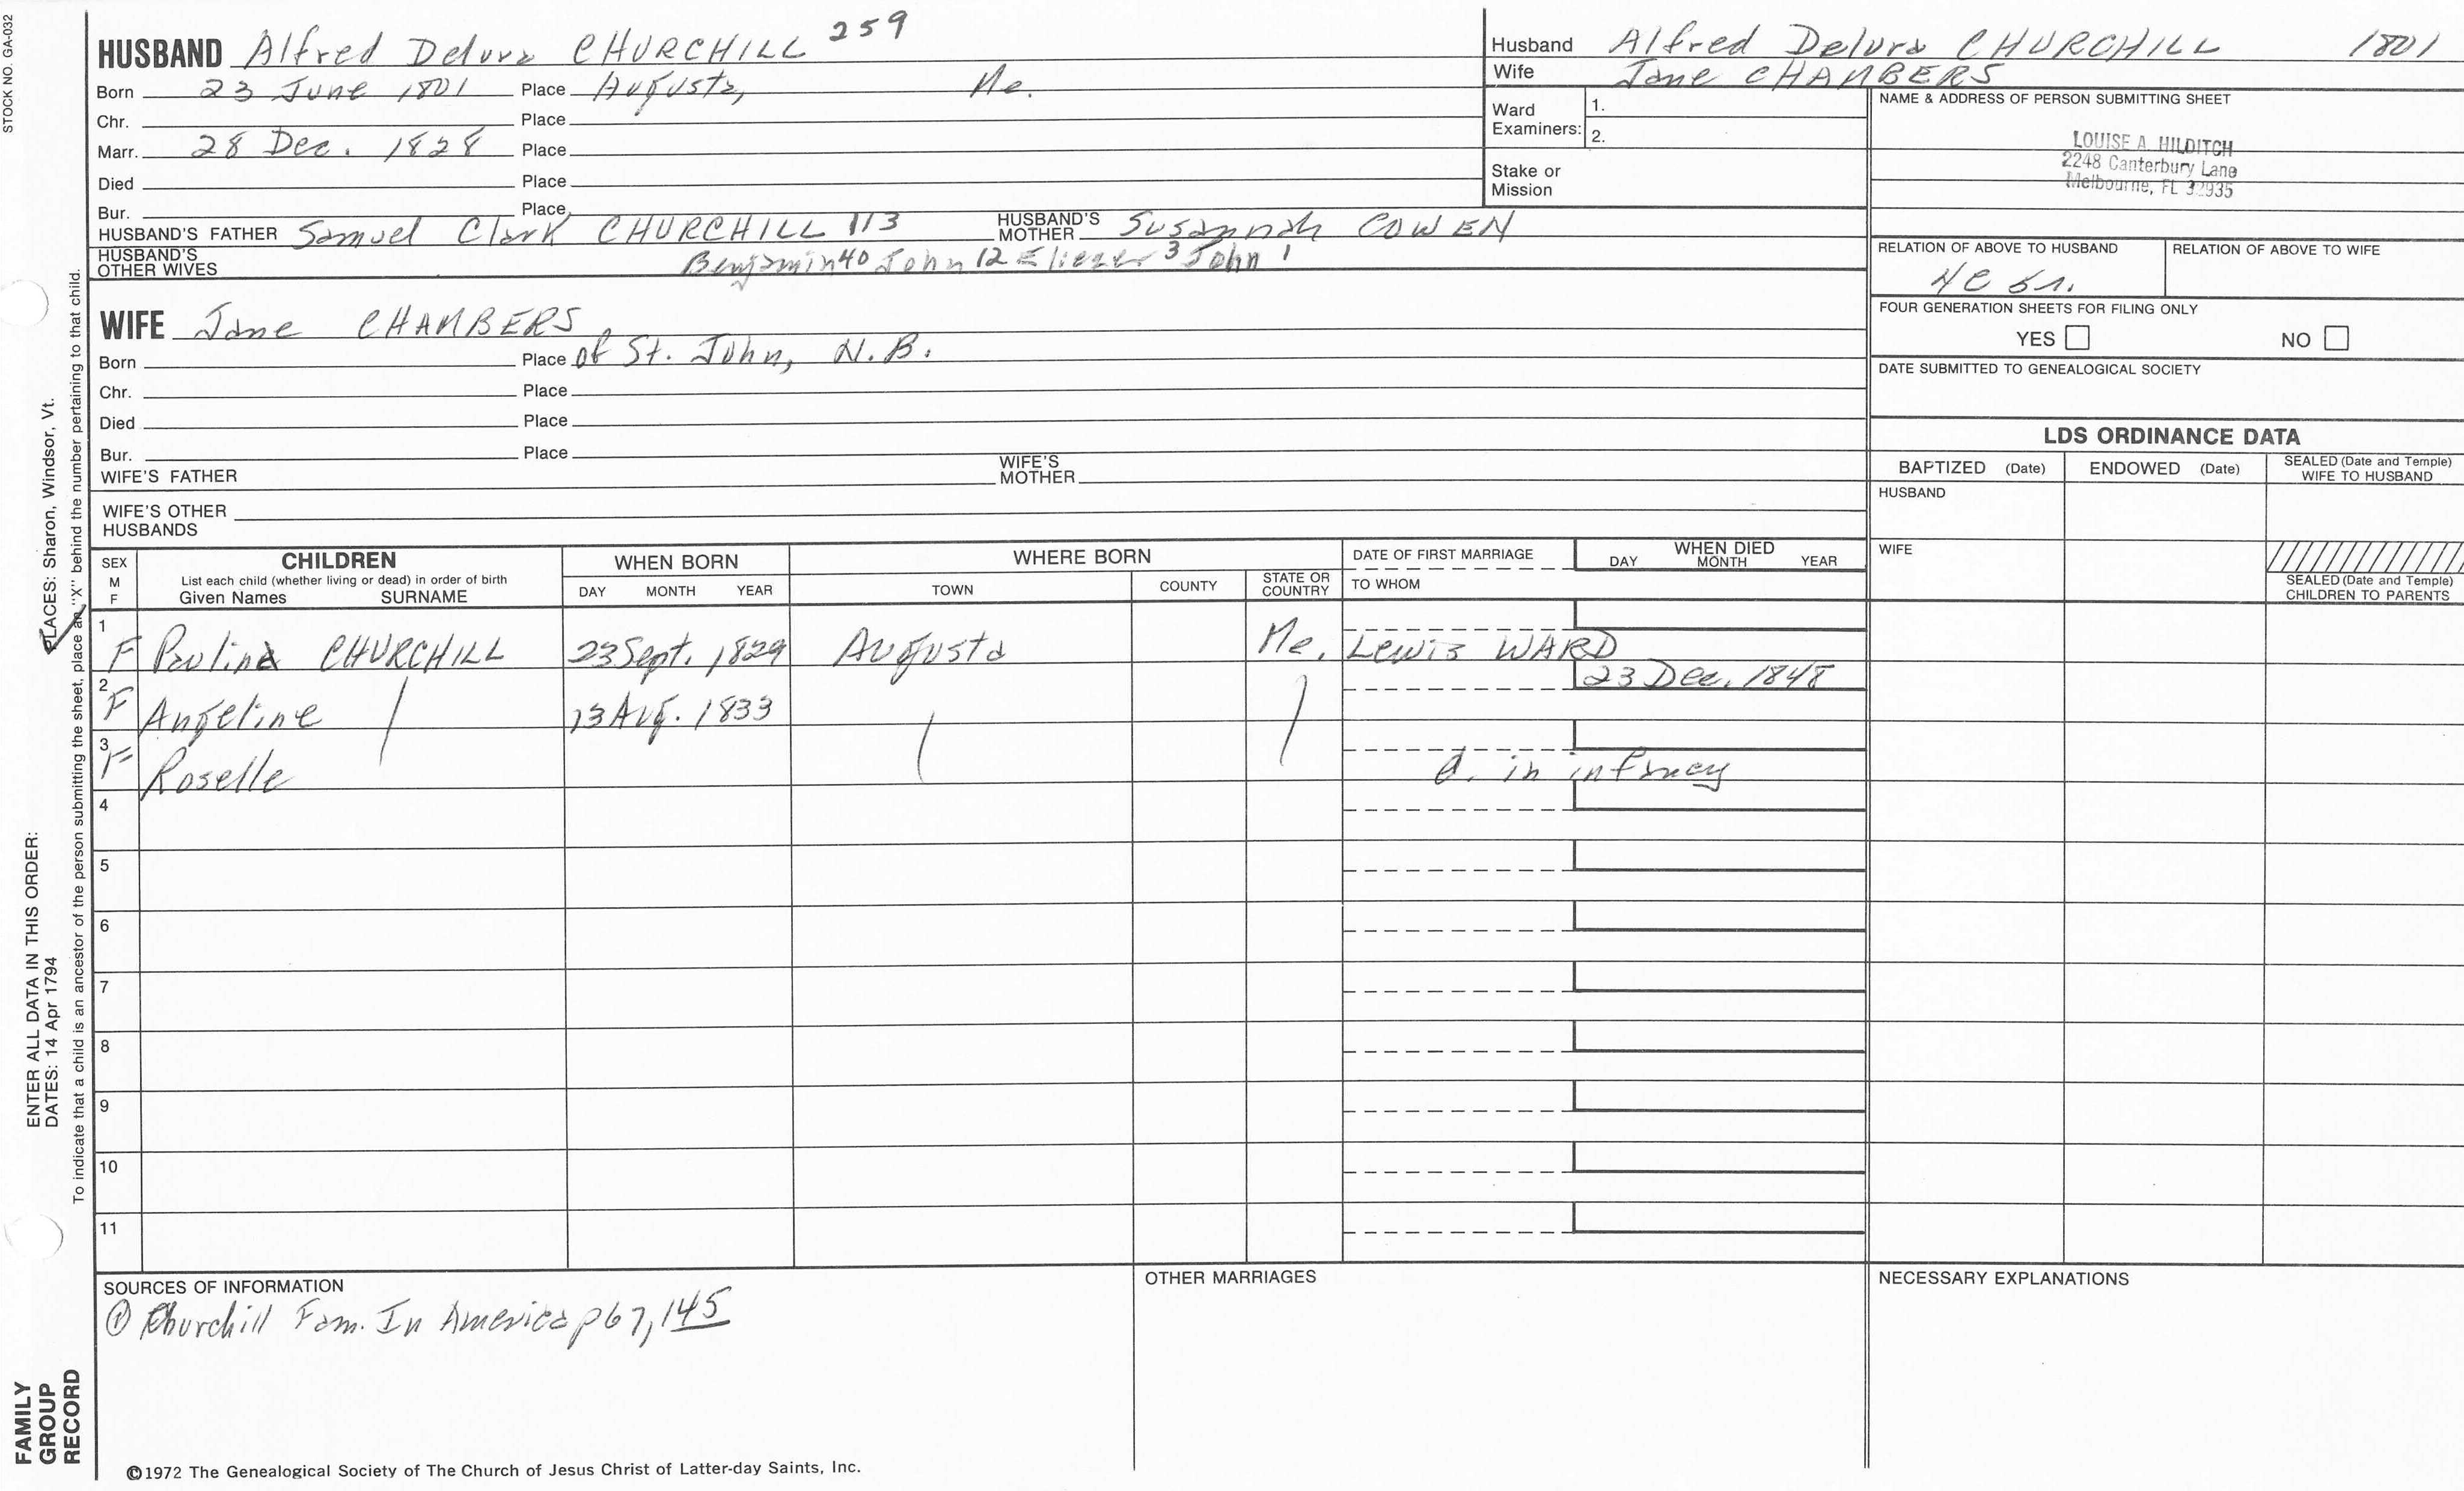 STOCK NO. GA-032
HUSBAND Alfred Delura CHURCHILL 259
Born 23 June 1801 Place Augusta, Me.
Chr. Place
Marr. 28 Dec. 1828 Place
Died Place
Bur. Place
HUSBAND'S FATHER Samuel Clark CHURCHILL 113 HUSBAND'S MOTHER Susannah COWEN
HUSBAND'S OTHER WIVES Benjamin 40 John 12 Eliezer 3 John 1
WIFE Jane CHAMBERS
Born Place of St. John, N.B.
Chr. Place
Died Place
Bur. Place
WIFE'S FATHER WIFE'S MOTHER
WIFE'S OTHER HUSBANDS
Husband Alfred Delura CHURCHILL 1801
Wife Jane CHAMBERS
Ward Examiners: 1.
2.
Stake or Mission
NAME & ADDRESS OF PERSON SUBMITTING SHEET
LOUISE A HILDITCH
2248 Canterbury Lane
Melbourne, FL 32935
RELATION OF ABOVE TO HUSBAND RELATION OF ABOVE TO WIFE
FOUR GENERATION SHEETS FOR FILING ONLY
YES NO
DATE SUBMITTED TO GENEALOGICAL SOCIETY
LDS ORDINANCE DATA
BAPTIZED (Date) ENDOWED (Date) SEALED (Date and Temple) WIFE TO HUSBAND
HUSBAND
WIFE
SEALED (Date and Temple) CHILDREN TO PARENTS
SEX M F CHILDREN WHEN BORN WHERE BORN DATE OF FIRST MARRIAGE WHEN DIED
List each child (whether living or dead) in order of birth
Given Names SURNAME DAY MONTH YEAR TOWN COUNTY STATE OR COUNTRY TO WHOM DAY MONTH YEAR
1 F Paulina CHURCHILL 23 Sept. 1829 Augusta Me. Lewis WARD
2 F Angeline 13 Aug. 1833 23 Dec. 1848
3 F Roselle d. in infancy
4
5
6
7
8
9
10
11
SOURCES OF INFORMATION
① Churchill Fam. In America p67, 145
OTHER MARRIAGES
NECESSARY EXPLANATIONS
©1972 The Genealogical Society of The Church of Jesus Christ of Latter-day Saints, Inc.
FAMILY GROUP RECORD
ENTER ALL DATA IN THIS ORDER:
DATES: 14 Apr 1794
PLACES: Sharon, Windsor, Vt.
To indicate that a child is an ancestor of the person submitting the sheet, place an "X" behind the number pertaining to that child.